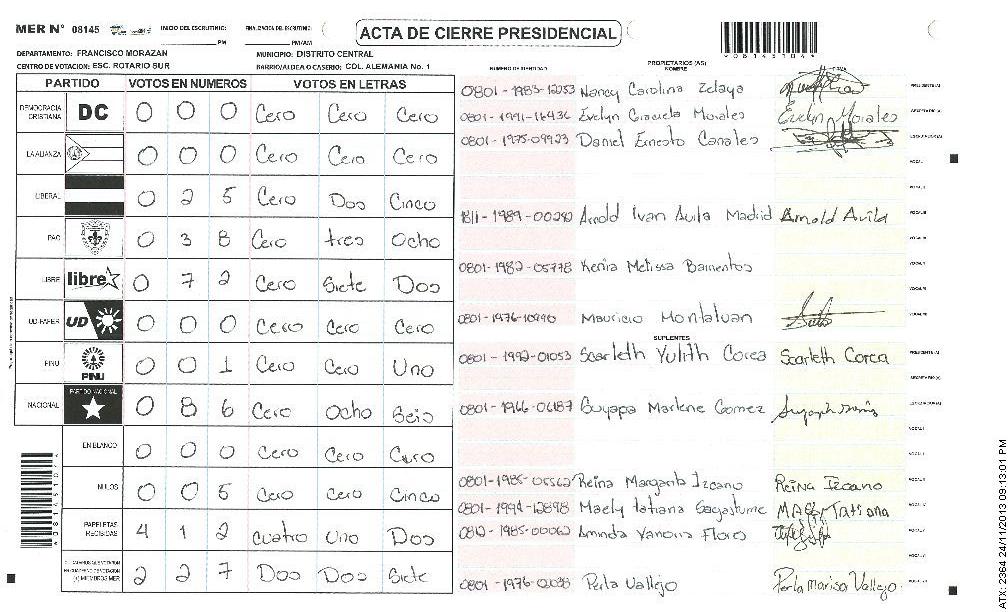 MER N° 08145 INICIO DEL ESCRUTINIO: PM FINALIZACION DEL ESCRUTINIO: PM/AM
ACTA DE CIERRE PRESIDENCIAL
DEPARTAMENTO: FRANCISCO MORAZAN MUNICIPIO: DISTRITO CENTRAL
CENTRO DE VOTACION: ESC. ROTARIO SUR BARRIO/ALDEA O CASERIO: COL. ALEMANIA No. 1
PARTIDO VOTOS EN NUMEROS VOTOS EN LETRAS
DEMOCRACIA CRISTIANA DC 0 0 0 Cero Cero Cero
LA ALIANZA 0 0 0 Cero Cero Cero
LIBERAL 0 2 5 Cero Dos Cinco
PAC 0 3 8 Cero tres Ocho
LIBRE libre 0 7 2 Cero Siete Dos
UD-FAPER UD 0 0 0 Cero Cero Cero
PINU PINU 0 0 1 Cero Cero Uno
NACIONAL PARTIDO NACIONAL 0 8 6 Cero Ocho Seis
EN BLANCO 0 0 0 Cero Cero Cero
NULOS 0 0 5 Cero cero Cinco
PAPELETAS RECIBIDAS 4 1 2 cuatro Uno Dos
2 2 7 Dos Dos Siete
NUMERO DE IDENTIDAD PROPIETARIOS (AS) NOMBRE FIRMA
0801-1983-12053 Nancy Carolina Zelaya PRESIDENTE (A)
0801-1991-16436 Evelyn Graciela Morales Evelyn Morales SECRETARIO (A)
0801-1975-09923 Daniel Ernesto Canales
1811-1989-00280 Arnold Ivan Avila Madrid Arnold Avila
0801-1982-05778 Kenia Melissa Barrientos
0801-1976-10990 Mauricio Montalvan
SUPLENTES
0801-1992-01053 Scarleth Yulith Corea Scarleth Corea PRESIDENTE (A)
SECRETARIO (A)
0801-1966-06187 Guyapa Marlene Gomez
0801-1985-05562 Reina Margarita Izcano Reina Izcano
0801-1994-12898 Maely tatiana Sagastume Maely Tatiana
0812-1985-00062 Aminda Yanoria Flores
0801-1976-02098 Perla Vallejo Perla Marisa Vallejo
ATX: 2364 24/11/2013 09:13:01 PM